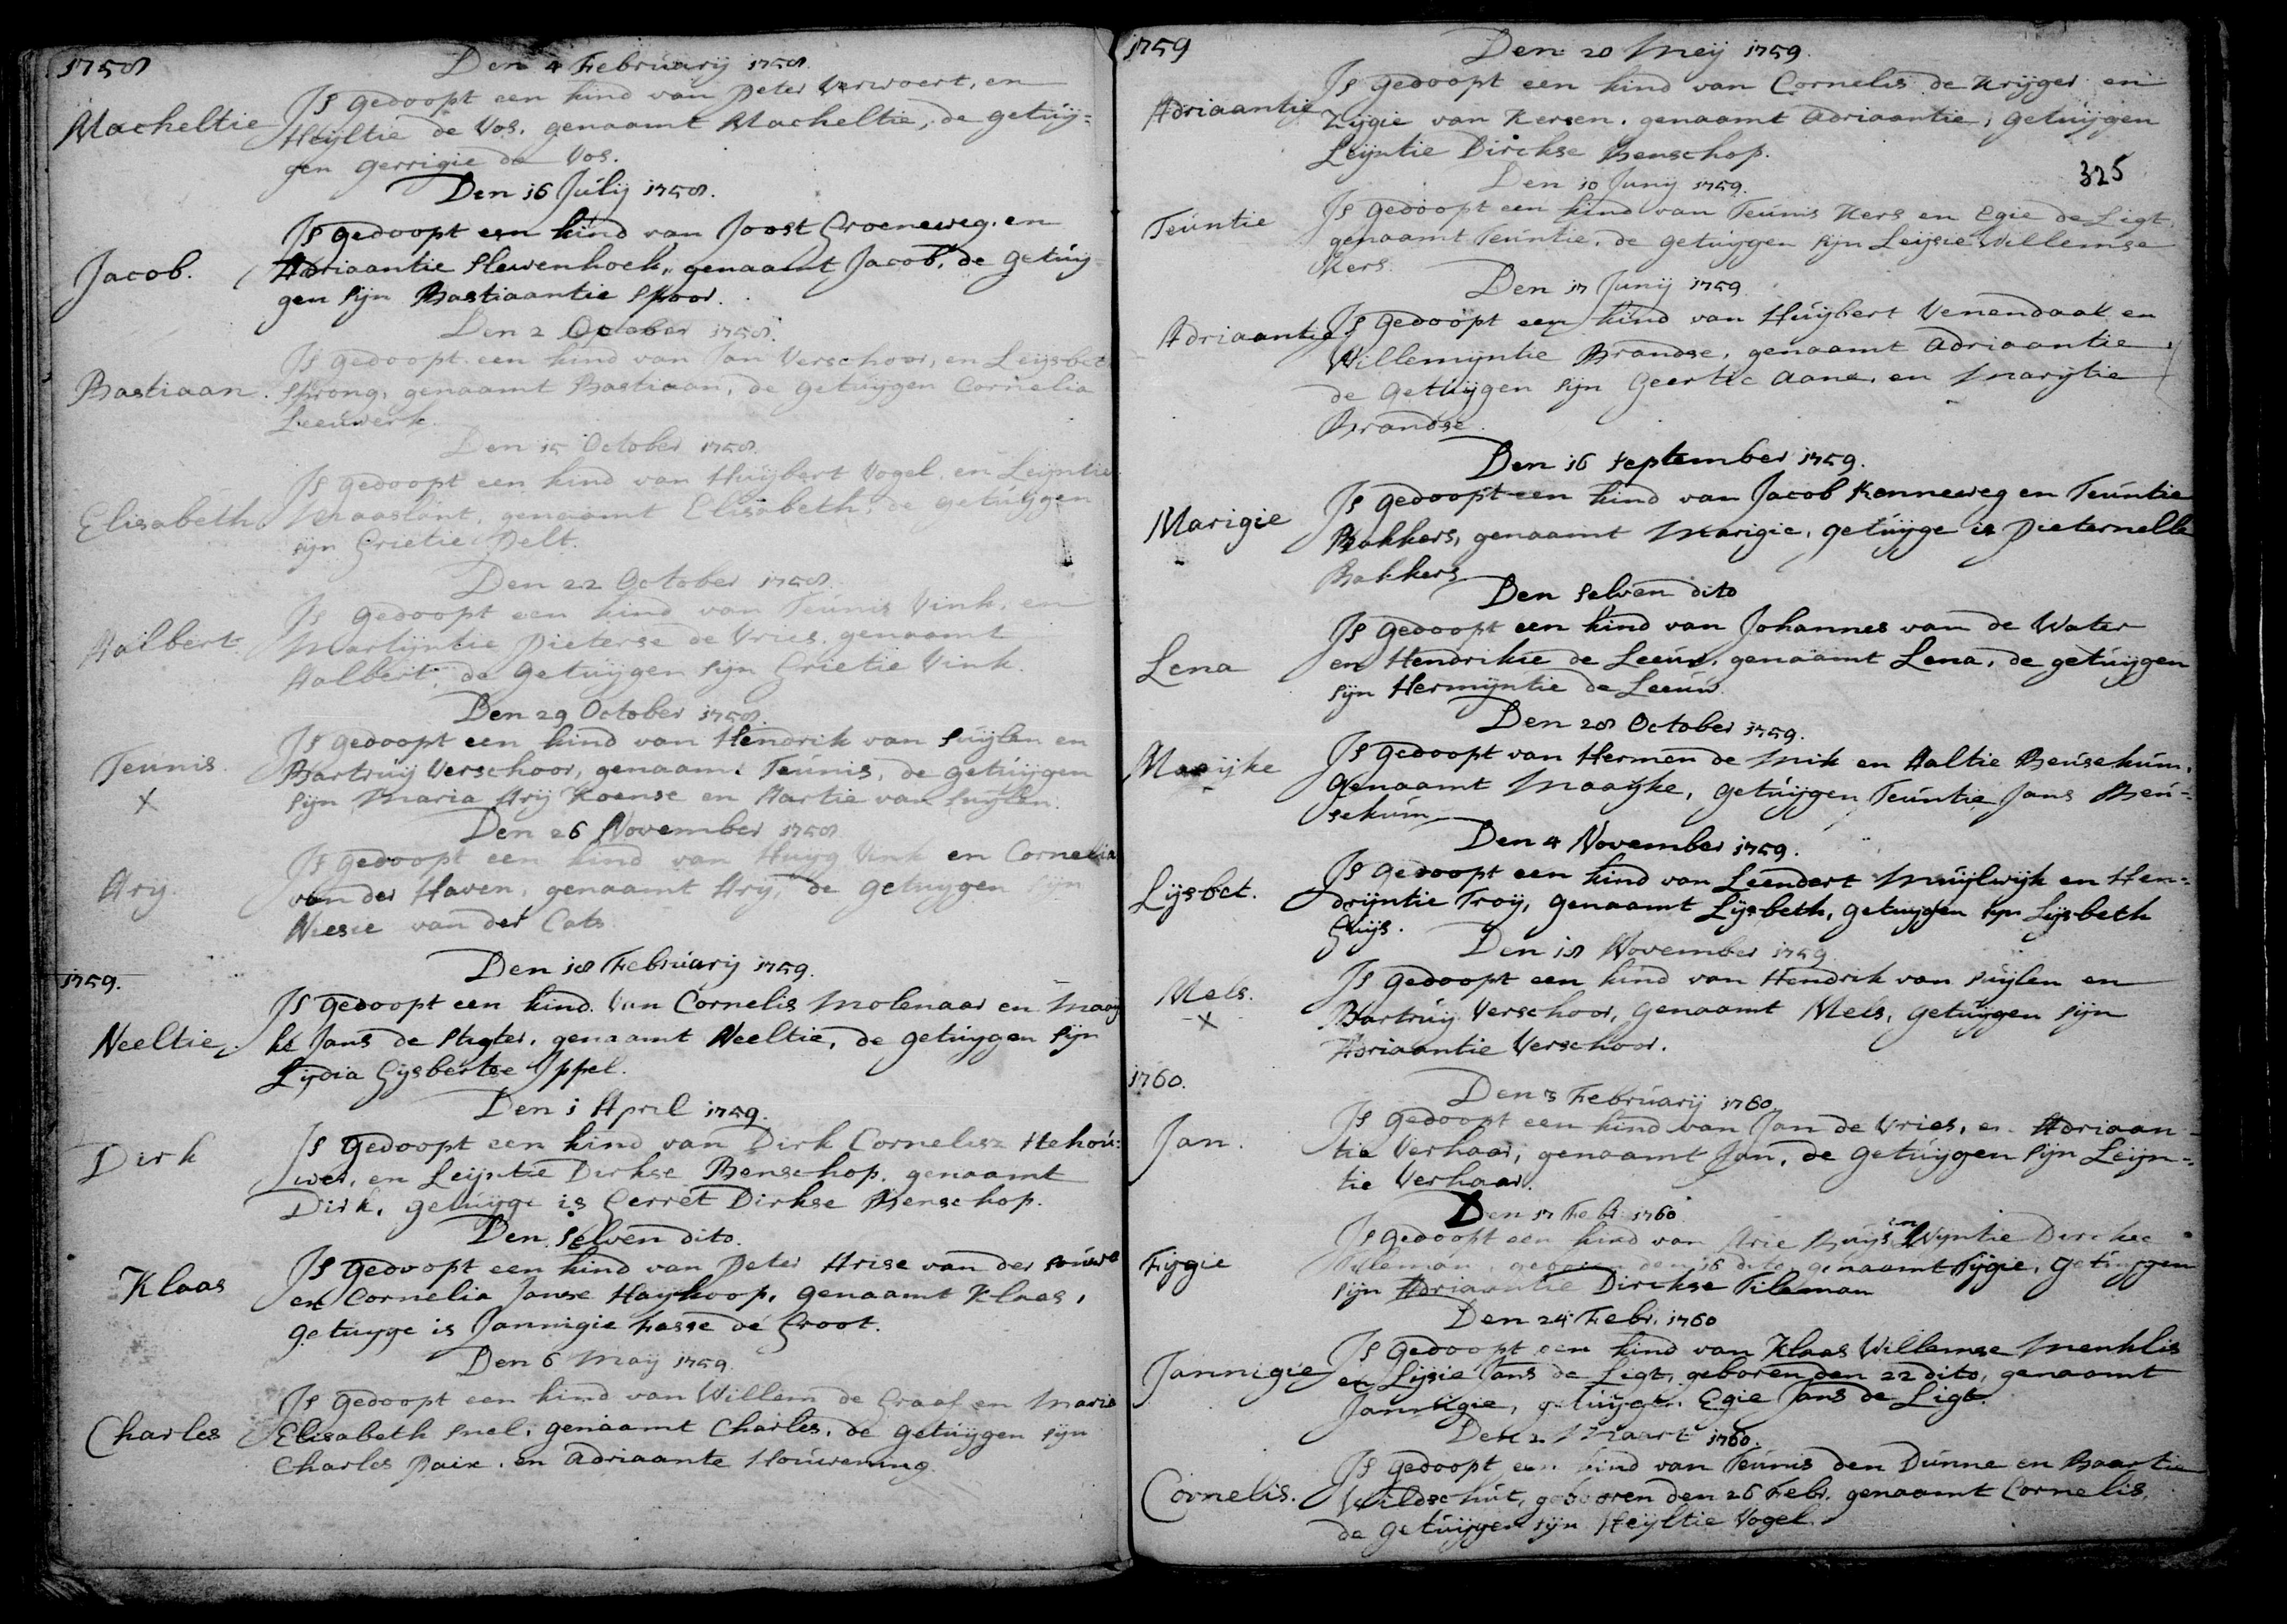 1758
Den 4 February 1758.
Macheltie
Is gedoopt een kind van Peter Verwoert, en
Heyltie de Vos, genaamt Macheltie, de getuy-
gen Gerrigie de Vos.
Den 16 Julij 1758.
Jacob.
Is gedoopt een kind van Joost Groeneweg, en
Adriaantie Slewenhoek, genaamt Jacob, de getuy-
gen sijn Bastiaantie Spoor.
Den 2 October 1758.
Bastiaan.
Is gedoopt een kind van Jan Verschoor, en Leijsbet
Sprong, genaamt Bastiaan, de getuygen Cornelia
Leeuwerk.
Den 15 October 1758.
Elisabeth
Is gedoopt een kind van Huijbert Vogel, en Leijntie
Maaslant, genaamt Elisabeth, de getuygen
sijn Grietie Delt.
Den 22 October 1758.
Aalbert.
Is gedoopt een kind van Teunis Vink, en
Martijntie Pieterse de Vries, genaamt
Aalbert, de getuijgen sijn Grietie Vink.
Den 29 October 1758.
Teunis.
X
Is gedoopt een kind van Hendrik van Suijlen en
Bartruij Verschoor, genaamt Teunis, de getuijgen
sijn Maria Arij Koense en Aartie van Suijlen.
Den 26 November 1758
Arij
Is gedoopt een kind van Huijg Vink en Cornelia
van der Haven, genaamt Arij, de getuygen sijn
Niesie van der Cats
1759.
Den 18 Februarij 1759.
Neeltie,
Is gedoopt een kind van Cornelis Molenaar en Maay
ke Jans de Sligter, genaamt Neeltie, de getuijgen sijn
Lijdia Gijsbertse Ippel.
Den 1 April 1759.
Dirk
Is gedoopt een kind van Dirk Cornelisz Stehou:
wer, en Leijntie Dirkse Benschop, genaamt
Dirk, getuijge is Gerret Dirkse Benschop.
Den selven dito.
Klaas
Is gedoopt een kind van Peter Arise van der
en Cornelia Janse Haykoop, genaamt Klaas,
getuyge is Jannigie Fasse de Groot.
Den 6 Maij 1759.
Charles
Is gedoopt een kind van Willem de Graaf en Maria
Elisabeth Snel, genaamt Charles, de getuijgen sijn
Charles Paix, en Adriaante Houwening.
1759
Den 20 Meij 1759.
Adriaantie
Is gedoopt een kind van Cornelis de Krijger en
Zijgie van Kersen, genaamt Adriaantie, getuijgen
Leijntie Dirckse Benschop.
325
Den 10 Junij 1759.
Teuntie
Is gedoopt een kind van Teunis Kers en Egie de Ligt,
genaamt Teuntie, de getuijgen sijn Leijsie Willemse
Kers.
Den 17 Junij 1759
Adriaantie
Is gedoopt een kind van Huijbert Venendaal en
Willemijntie Brandse, genaamt Adriaantie,
de getuijgen sijn Geertie Aane, en Marijtie
Brandse.
Den 16 September 1759.
Marigie
Is gedoopt een kind van Jacob Kenneweg en Teuntie
Bakkers, genaamt Marigie, getuijge is Pieternelle
Bakkers
Den selven dito
Lena
Is gedoopt een kind van Johannes van de Water
en Hendrikie de Leeuw, genaamt Lena, de getuijgen
sijn Hermijntie de Leeuw.
Den 28 October 1759.
Maaijke
Is gedoopt van Hermen de Mik en Aaltie Beusekum,
genaamt Maayke, getuijgen Teuntie Jans Beu-
sekum
Den 4 November 1759.
Lijsbet.
Is gedoopt een kind van Leendert Muijlwijk en Hen-
drijntie Troij, genaamt Lijsbeth, getuijgen sijn Lijsbeth
Gijs.
Den 18 November 1759
Mels.
X
Is gedoopt een kind van Hendrik van Suijlen en
Bartruij Verschoor, genaamt Mels, getuijgen sijn
Adriaantie Verschoor.
1760.
Den 3 Februarij 1760
Jan.
Is gedoopt een kind van Jan de Vries, en Adriaan-
tie Verhaar, genaamt Jan, de getuijgen sijn Leijn-
tie Verhaar.
Den 17 Febr. 1760
Fijgie
Is gedoopt een kind van Arie Buijs en Wijntie Dirckse
Tileman, geboren den 16 dito, genaamt Fijgie, getuijgen
sijn Adriaantie Dirckse Tileman
Den 24 Febr. 1760
Jannigie
Is gedoopt een kind van Klaas Willemse Menklis
en Lijsie Jans de Ligt, geboren den 22 dito, genaamt
Jannigie, getuijgen Egie Jans de Ligt.
Den 2 Maart 1760.
Cornelis.
Is gedoopt een kind van Teunis den Dunne en Baartie
Wildschut, gebooren den 26 Febr. genaamt Cornelis,
de getuijgen sijn Heijltie Vogel.